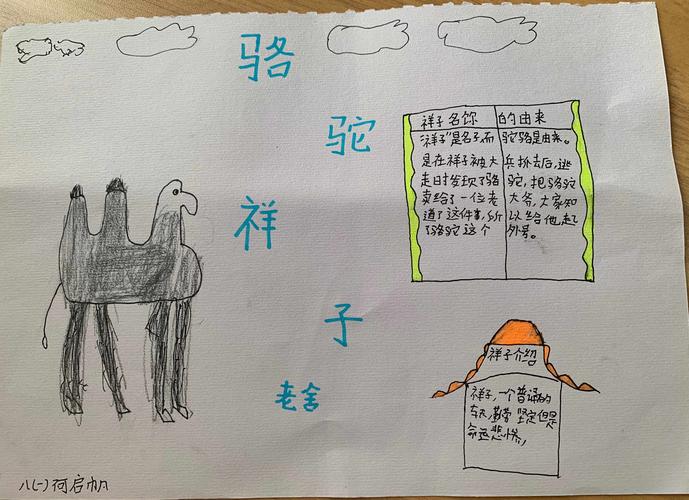 骆
驼
祥
子
老舍
祥子名称的由来
“祥子”是名子,而骆驼是由来。
是在祥子被大兵抓去后,逃
走时发现了骆驼,把骆驼
卖给了一位老大爷,大家知
道了这件事,所以给他起
了骆驼这个外号。
祥子介绍
祥子,一个普通的
车夫,勤劳坚定但是
命运悲惨,
八(一)何启帆